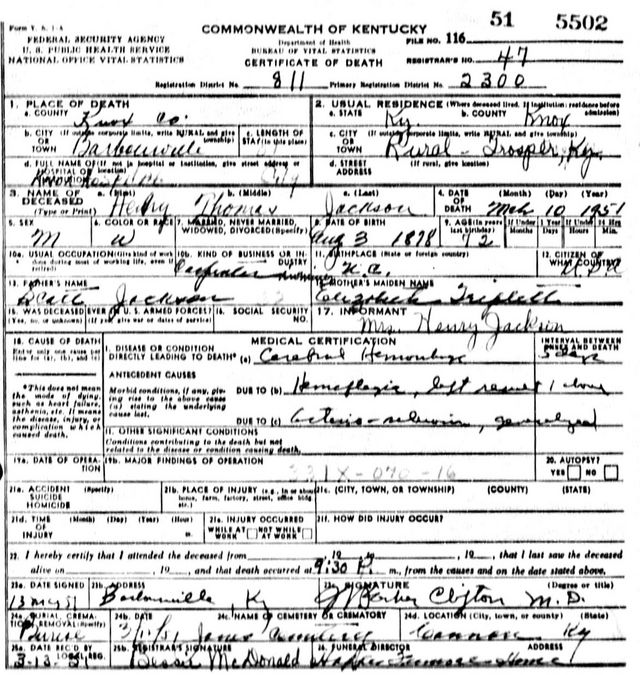 Form V. S. 1-A
51 5502
FEDERAL SECURITY AGENCY
U. S. PUBLIC HEALTH SERVICE
NATIONAL OFFICE VITAL STATISTICS
COMMONWEALTH OF KENTUCKY
Department of Health
BUREAU OF VITAL STATISTICS
CERTIFICATE OF DEATH
FILE NO. 116
REGISTRAR'S NO. 47
Registration District No. 811 Primary Registration District No. 2300
1. PLACE OF DEATH
a. COUNTY Knox Co.
2. USUAL RESIDENCE (Where deceased lived. If institution: residence before admission)
a. STATE Ky b. COUNTY Knox
b. CITY (If outside corporate limits, write RURAL and give township) OR TOWN Barbourville
c. LENGTH OF STAY (in this place)
c. CITY (If outside corporate limits, write RURAL and give township) OR TOWN Rural - Trosper, Ky.
d. FULL NAME OF (If not in hospital or institution, give street address or location) HOSPITAL OR INSTITUTION Knox
d. STREET ADDRESS (If rural, give location)
3. NAME OF DECEASED (Type or Print)
a. (First) Henry b. (Middle) Thomas c. (Last) Jackson
4. DATE OF DEATH (Month) (Day) (Year) Mch 10 1951
5. SEX M
6. COLOR OR RACE W
7. MARRIED, NEVER MARRIED, WIDOWED, DIVORCED (Specify)
8. DATE OF BIRTH Aug 3 1878
9. AGE (In years last birthday) 72
If Under 1 Year Months Days
If Under 24 Hrs. Hours Min.
10a. USUAL OCCUPATION (Give kind of work done during most of working life, even if retired) Carpenter
10b. KIND OF BUSINESS OR INDUSTRY
11. BIRTHPLACE (State or foreign country) N.C.
12. CITIZEN OF WHAT COUNTRY?
13. FATHER'S NAME Jackson
MOTHER'S MAIDEN NAME Elizabeth Triplett
15. WAS DECEASED EVER IN U. S. ARMED FORCES? (Yes, no, or unknown) (If yes, give war or dates of service)
16. SOCIAL SECURITY NO.
17. INFORMANT Mrs. Henry Jackson
18. CAUSE OF DEATH
Enter only one cause per line for (a), (b), and (c)
*This does not mean the mode of dying, such as heart failure, asthenia, etc. It means the disease, injury, or complication which caused death.
MEDICAL CERTIFICATION
INTERVAL BETWEEN ONSET AND DEATH
I. DISEASE OR CONDITION DIRECTLY LEADING TO DEATH* (a) Cerebral Hemorrhage 5 days
ANTECEDENT CAUSES
Morbid conditions, if any, giving rise to the above cause (a) stating the underlying cause last.
DUE TO (b) Hemeplegia, left
DUE TO (c) generalized
II. OTHER SIGNIFICANT CONDITIONS
Conditions contributing to the death but not related to the disease or condition causing death.
19a. DATE OF OPERATION
19b. MAJOR FINDINGS OF OPERATION
331X-070-16
20. AUTOPSY?
YES NO
21a. ACCIDENT SUICIDE HOMICIDE (Specify)
21b. PLACE OF INJURY (e.g., in or about home, farm, factory, street, office bldg., etc.)
21c. (CITY, TOWN, OR TOWNSHIP) (COUNTY) (STATE)
21d. TIME OF INJURY (Month) (Day) (Year) (Hour) m.
21e. INJURY OCCURRED
WHILE AT WORK NOT WHILE AT WORK
21f. HOW DID INJURY OCCUR?
22. I hereby certify that I attended the deceased from , 19 , 19 , that I last saw the deceased
alive on , 19 , and that death occurred at 9:30 P. m., from the causes and on the date stated above.
23a. DATE SIGNED 13
23b. ADDRESS Barbourville, Ky
23c. SIGNATURE Clifton M.D. (Degree or title)
24a. BURIAL, CREMATION, REMOVAL (Specify)
24b. DATE
24c. NAME OF CEMETERY OR CREMATORY Cemetery
24d. LOCATION (City, town, or county) (State) Cannon Ky
25a. DATE REC'D BY LOCAL REG. 3-13-51
25b. REGISTRAR'S SIGNATURE Bessie McDonald
26. FUNERAL DIRECTOR ADDRESS Home